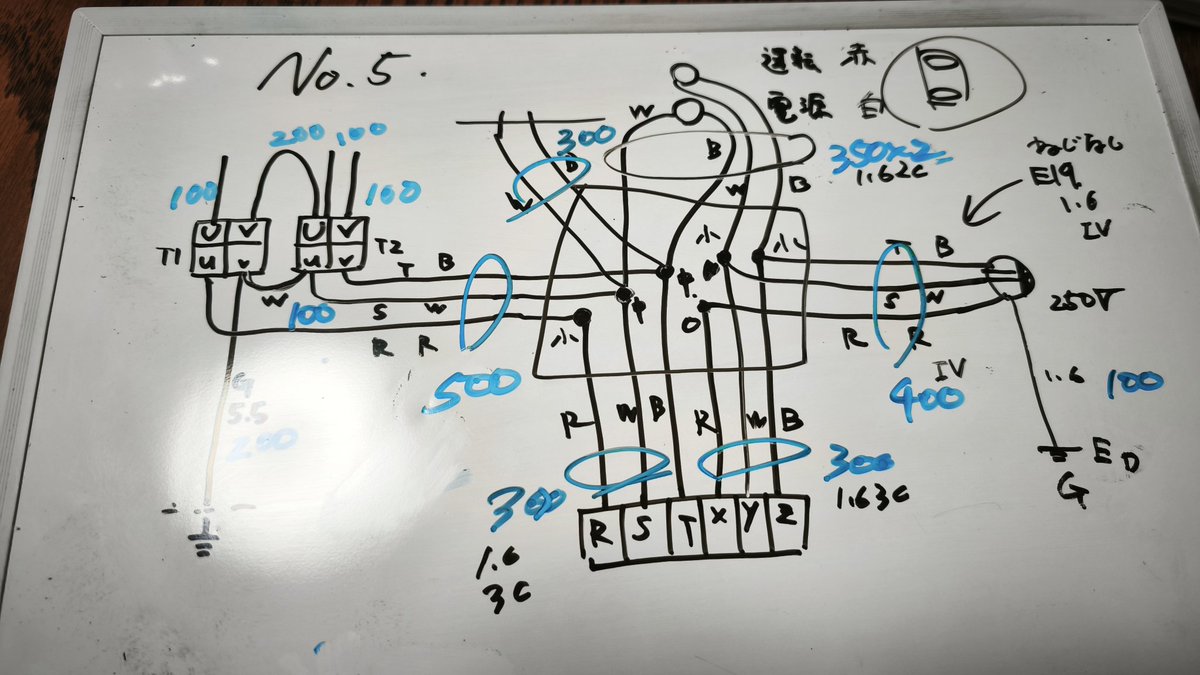 No.5.
運転 赤
電源 白
200 100
100
100
U V U V
u v u v
T1
T2
W
100
T B
S W
R R
500
G
5.5
200
300
B
W
W
B
W
B
350×2
1.6 2C
ねじなし
E19
1.6
IV
小
小
中
中
小
○
T B
S W
R R
IV
400
250V
1.6 100
E D
G
R W B R W B
300
1.6
3C
300
1.6 3C
R S T X Y Z